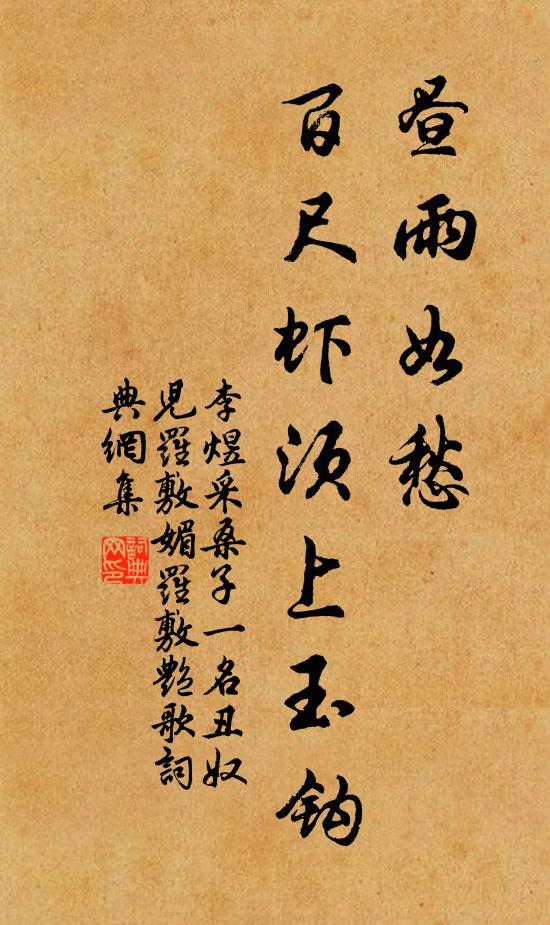 昼雨如愁
百尺虾须上玉钩
李煜采桑子一名丑奴
儿羅敷媚羅敷艷歌詞
典網集
詞典
网印